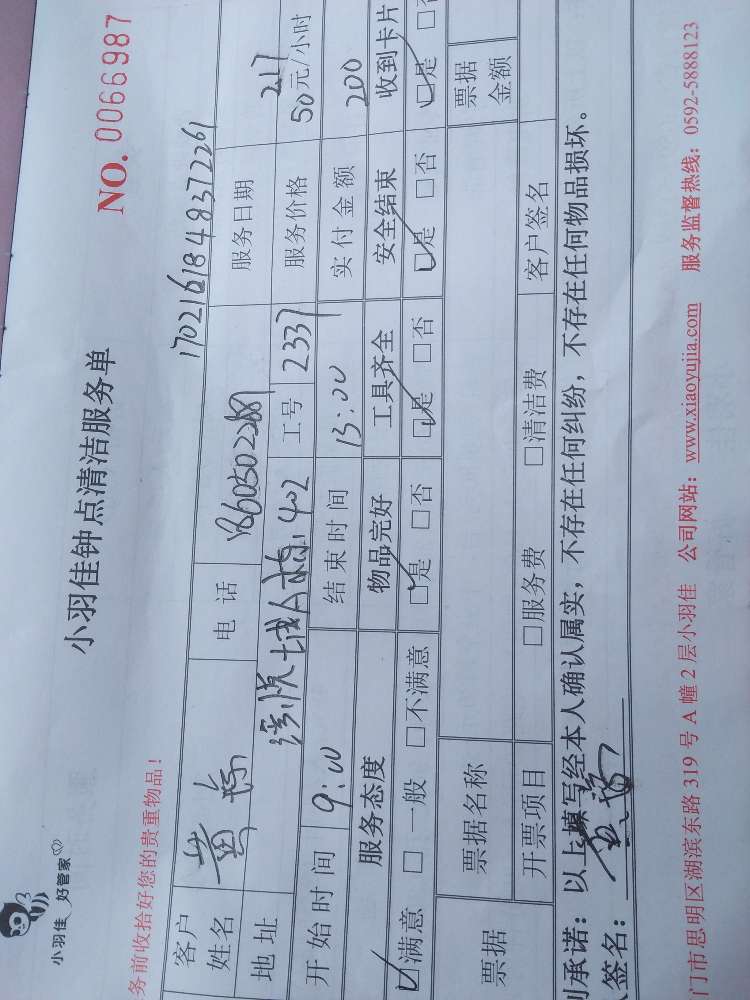 小羽佳 好管家
小羽佳钟点清洁服务单
NO. 0066987
务前收拾好您的贵重物品！
1702161848372261
客户姓名 黄 电话 服务日期 217
地址 402 工号 2337 服务价格 50元/小时
开始时间 9:00 结束时间 13:00 实付金额 200
服务态度 物品完好 工具齐全 安全结束 收到卡片
□满意 □一般 □不满意 □是 □否 □是 □否 □是 □否 □是 □否
票据 票据名称 票据金额
开票项目 □服务费 □清洁费 客户签名
承诺：以上填写经本人确认属实，不存在任何纠纷，不存在任何物品损坏。
签名：
门市思明区湖滨东路 319 号 A 幢 2 层小羽佳 公司网站：www.xiaoyujia.com 服务监督热线：0592-5888123